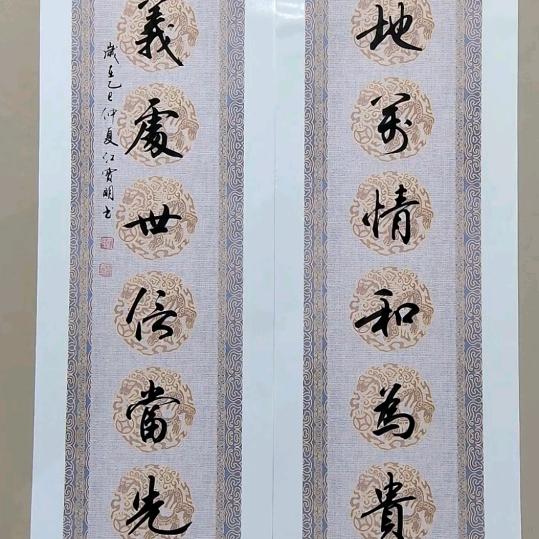 地萬情和為貴
義處世信當先
歲在乙巳仲夏江寶明書